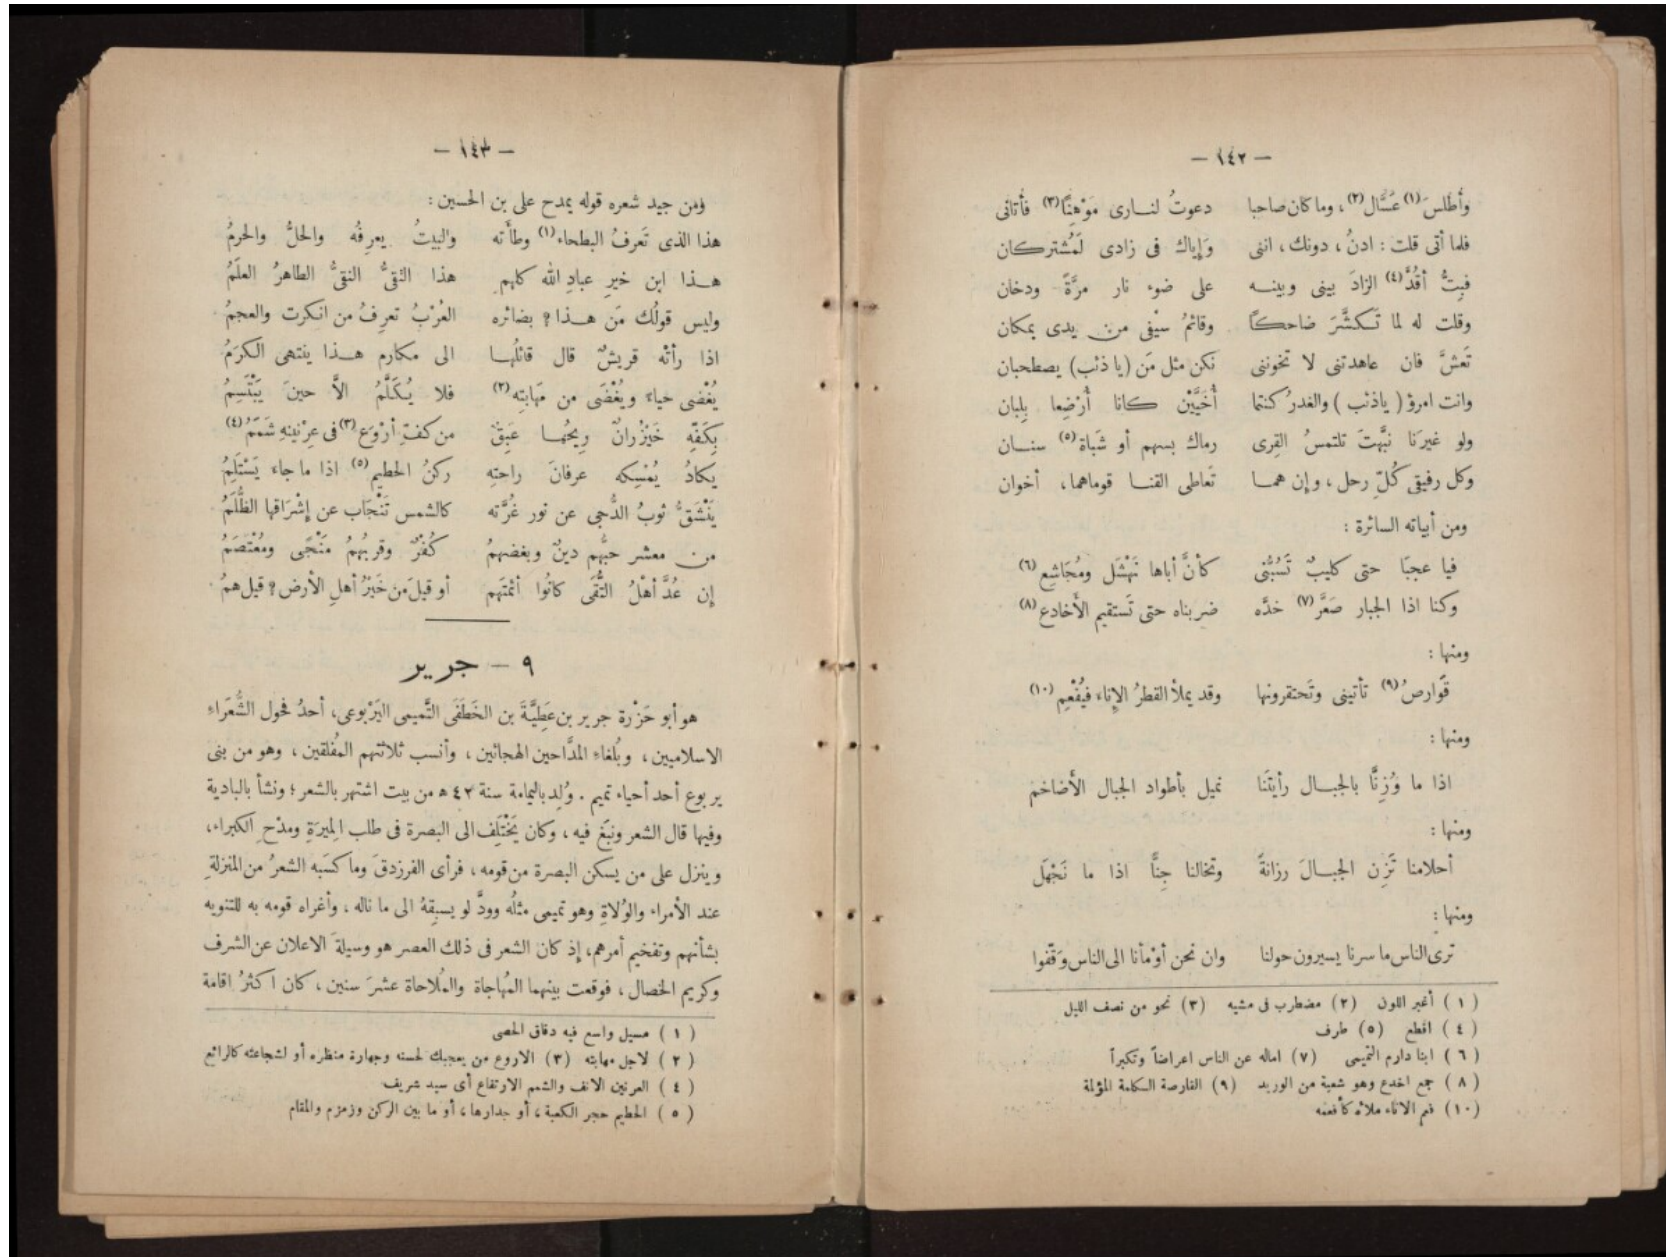 — ١٤٢ —
وأطلسَ (١) عسَّال (٢) ، وما كان صاحبا دعوتُ لنـارى مَوْهِنًا (٣) فأتانى
فلما أتى قلت : ادنُ ، دونك ، اننى وَإياك فى زادى لَمُشتركان
فبِتُّ أقُدُّ (٤) الزادَ بينى وبينـه على ضوء نار مرَّةً ودخان
وقلت له لما تَكشَّرَ ضاحكًا وقائمُ سيْفى من يدى بمكان
تَعشَّ فان عاهدتنى لا تخوننى نكن مثل مَن (يا ذئب) يصطحبان
وانت امرؤ ( ياذئب ) والغدرُ كنتما أُخَيَّيْن كانا أُرْضِعا بِلبان
ولو غيرَنا نبَّهتَ تلتمسُ القِرى رماك بسهم أو شَباة (٥) سنـان
وكل رفيقى كُلِّ رحل ، وإن همـا تَعاطى القنـا قوماهما ، أخوان
ومن أبياته السائرة :
فيا عجبًا حتى كليبٌ تَسُبُّنى كأنَّ أباها نَهْشَل ومُجَاشِع (٦)
وكنا اذا الجبار صَعَّر (٧) خدَّه ضربناه حتى تَستقيم الأَخادع (٨)
ومنها :
قَوارصُ (٩) تأتينى وتَحتقرونها وقد يملأ القطرُ الإناء فيُفْعِم (١٠)
ومنها :
اذا ما وُزِنَّا بالجبـال رأيتَنا نميل بأطواد الجبال الأَضاخم
ومنها :
أحلامنا تَزِن الجبـالَ رزانةً وتخالنا جِنًّا اذا ما نَجْهَل
ومنها :
ترى الناس ما سرنا يسيرون حولنا وان نحن أوْمأنا الى الناس وَقَّفوا
( ١ ) أغبر اللون ( ٢ ) مضطرب فى مشيه ( ٣ ) نحو من نصف الليل
( ٤ ) اقطع ( ٥ ) طرف
( ٦ ) ابنا دارم التميمى ( ٧ ) اماله عن الناس اعراضاً وتكبراً
( ٨ ) جمع اخدع وهو شعبة من الوريد ( ٩ ) القارصة الكلمة المؤلمة
(١٠) فعم الاناء ملأه كأفعمه
— ١٤٣ —
ومن جيد شعره قوله يمدح على بن الحسين :
هذا الذى تَعرفُ البطحاء (١) وطأته والبيتُ يعرِفُه والحلُّ والحرمُ
هـذا ابن خيرِ عبادِ الله كلهم هذا التقىُّ النقىُّ الطاهرُ العلَمُ
وليس قولُك مَن هـذا ؟ بضائره العُرْبُ تعرِفُ من انكرت والعجمُ
اذا رأتْه قريشٌ قال قائلُهـا الى مكارم هـذا ينتهى الكرَمُ
يُغْضى حياءً ويُغْضَى من مَهابتِه (٢) فلا يُكَلَّمُ الاَّ حينَ يَبْتَسِمُ
بِكَفِّهِ خَيْزُرانٌ رِيحُهـا عَبِقٌ من كفِّ أرْوَع (٣) فى عِرْنينِهِ شَمَمُ (٤)
يَكادُ يُمْسِكه عرفانَ راحتِه ركنُ الحطيم (٥) اذا ما جاء يَسْتَلِمُ
يَنْشَقُّ ثوبُ الدُّجى عن نور غُرَّته كالشمس تَنْجَاب عن إِشْرَاقها الظُّلَمُ
من معشر حبُّهم دينٌ وبغضهمُ كُفْرٌ وقربُهمُ مَنْجًى ومُعْتَصَمُ
إن عُدَّ أهْلُ التُّقَى كانُوا أئمتَهم أو قيلَ مَن خَيْرُ أهلِ الأرض ؟ قيل همُ
٩ — جرير
هو أبو حَزْرة جرير بن عَطِيَّةَ بن الخَطَفَى التَّميمى اليَرْبوعى، أحدُ فحول الشُّعَراء
الاسلاميين ، وبُلغاء المدَّاحين الهجائين ، وأنسب ثلاثتهم المُفلقين ، وهو من بنى
يربوع أحد أحياء تميم . وُلِد باليمامة سنة ٤٢ ه من بيت اشتهر بالشعر ؛ ونشأ بالبادية
وفيها قال الشعر ونبَغ فيه ، وكان يَخْتَلِف الى البصرة فى طلب المِيرَةِ ومدْحِ الكبراء،
وينزل على من يسكن البصرة من قومه ، فرأى الفرزدقَ وما كسَبه الشعرُ من المنزلةِ
عند الأمراء والوُلاةِ وهو تميمى مثلُه وودَّ لو يسبِقهُ الى ما ناله ، وأغراه قومه به للتنويه
بشأنهم وتفخيم أمرهم، إذ كان الشعر فى ذلك العصر هو وسيلةَ الاعلان عن الشرف
وكريم الخصال ، فوقعت بينهما المُهاجاة والمُلاحاة عشرَ سنين ، كان اكثرُ اقامة
( ١ ) مسيل واسع فيه دقاق الحصى
( ٢ ) لاجل مهابته ( ٣ ) الاروع من يعجبك لحسنه وجهارة منظره أو لشجاعته كالرائع
( ٤ ) العرنين الانف والشمم الارتفاع أى سيد شريف
( ٥ ) الحطيم حجر الكعبة ، أو جدارها ، أو ما بين الركن وزمزم والمقام